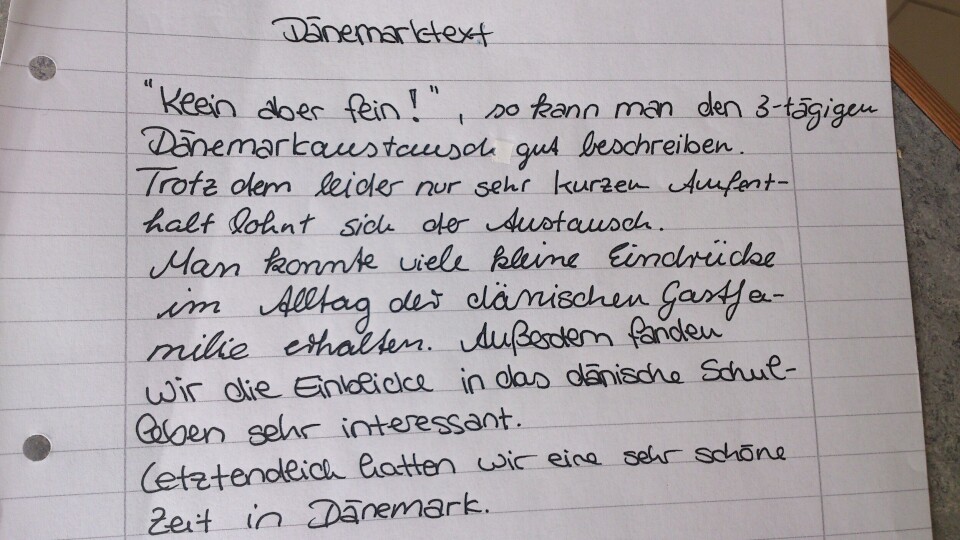 Dänemarktext
"Klein aber fein!", so kann man den 3-tägigen
Dänemarkaustausch gut beschreiben.
Trotz dem leider nur sehr kurzen Aufent-
halt lohnt sich der Austausch.
Man konnte viele kleine Eindrücke
im Alltag der dänischen Gastfa-
milie erhalten. Außerdem fanden
wir die Einblicke in das dänische Schul-
leben sehr interessant.
Letztendlich hatten wir eine sehr schöne
Zeit in Dänemark.